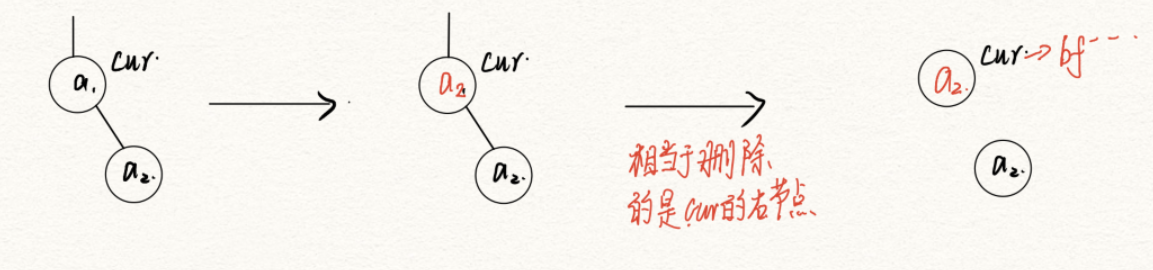 cur.
a₁
a₂.
cur.
a₂
a₂.
相当于删除、
的是cur的右节点
cur. → bf---
a₂.
a₂.